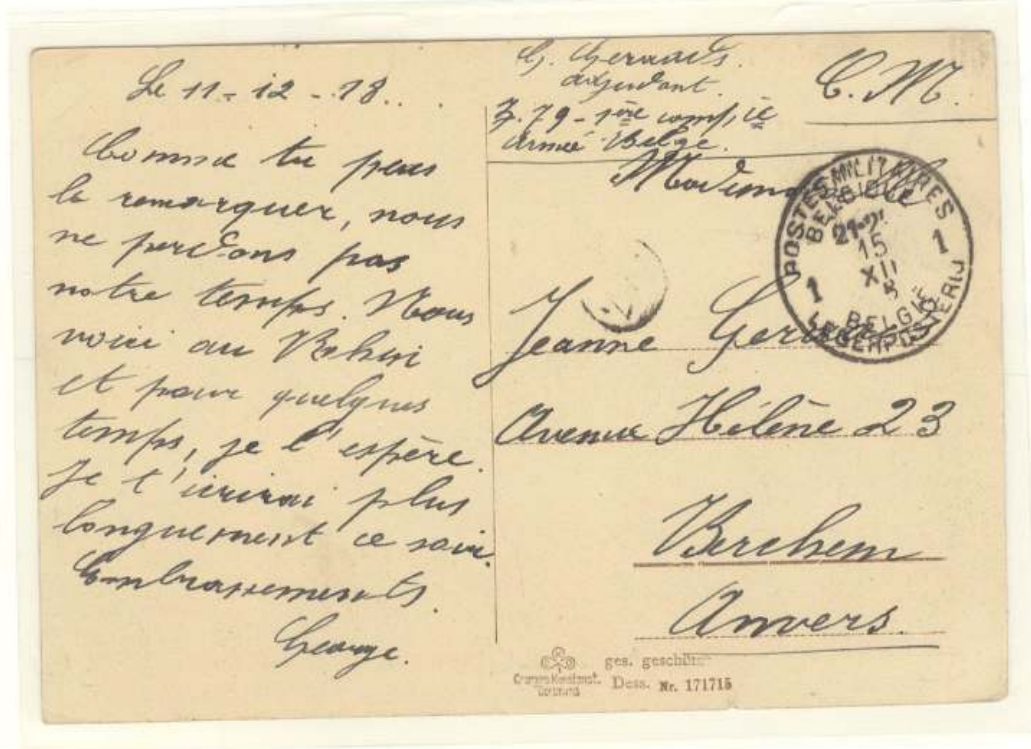 Le 11-12-18..
Comme tu peux
le remarquer, nous
ne perdons pas
notre temps. Nous
voici au Rhin
et pour quelques
temps, je l'espère.
Je t'écrirai plus
longuement ce soir.
Embrassements.
George.
G. Gervais.
adjudant.
Z.79 - 1ère comp, ie
Armée Belge.
C. M.
Mademoiselle
POSTES MILITAIRES
BELGIQUE
21-2
15
XII
8
1 1
BELGIË
LEGERPOSTERIJ
Jeanne
Avenue Hélène 23
Berchem
Anvers.
ges. geschützt
Dess. Nr. 171715